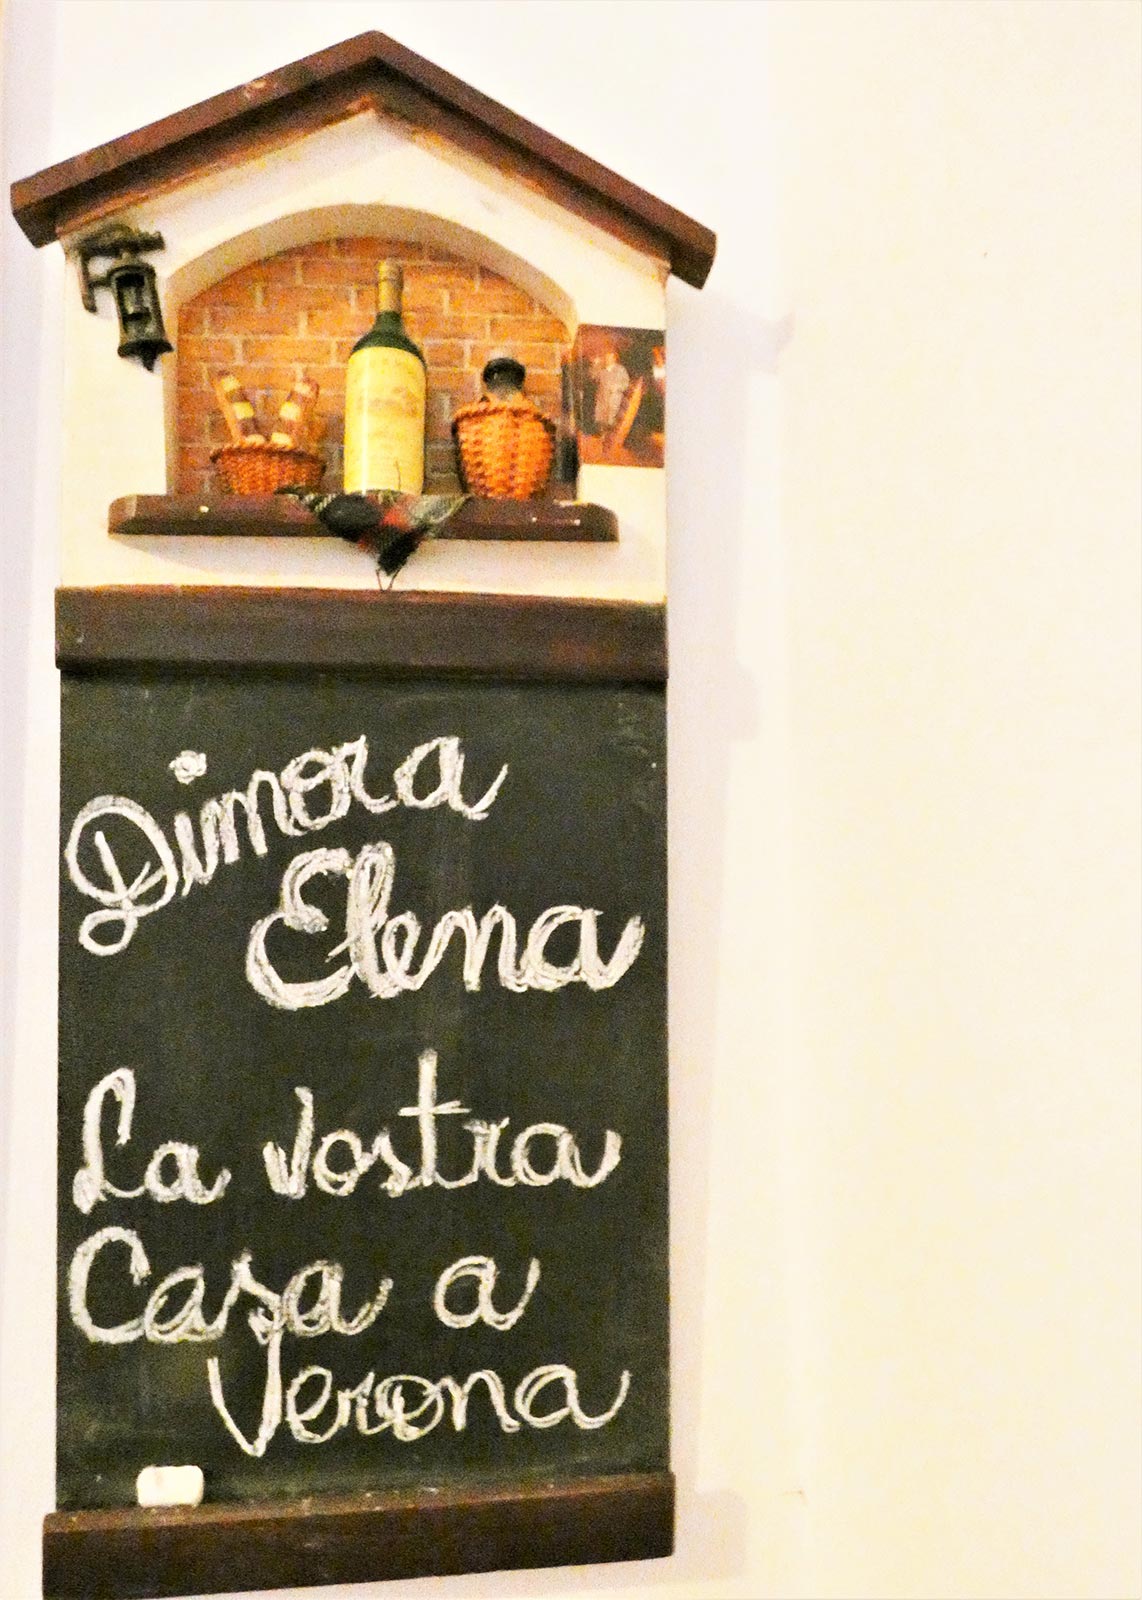 Dimora
Elena
La vostra
Casa a
Verona